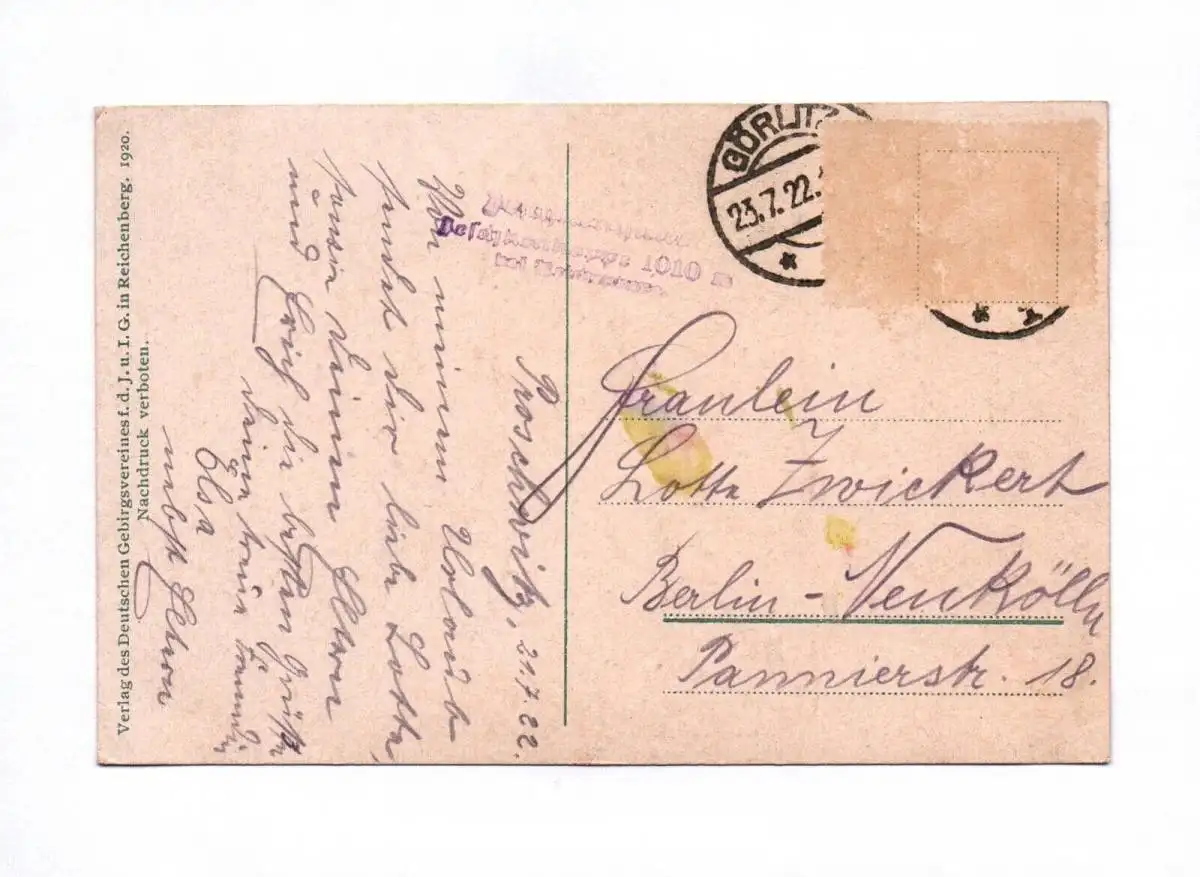 Verlag des Deutschen Gebirgsvereines f. d. J. u. I. G. in Reichenberg. 1920.
Nachdruck verboten.
GÖRLITZ
23.7.22.
Proschwitz, 21.7.22.
Von meinem Urlaub
sendet dir liebe Lotte,
sowie deinen Eltern
und Erich die besten Grüße
deine treue Freundin
Elsa
nebst Eltern
Fräulein
Lotte Zwickert
Berlin - Neukölln
Pannierstr. 18.